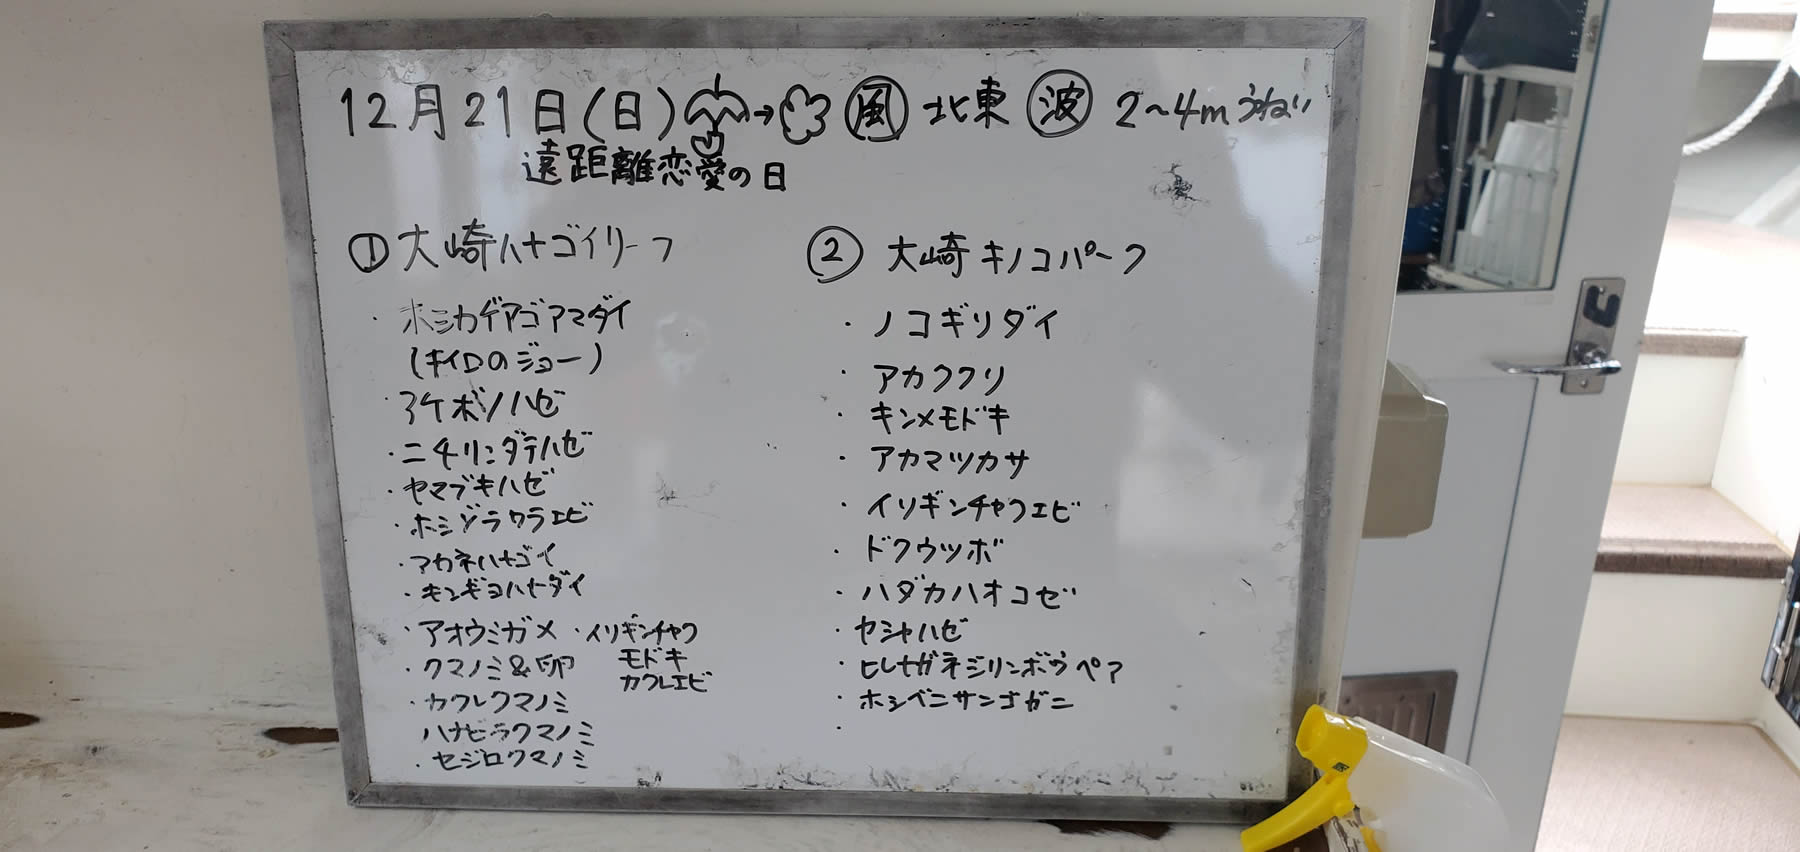 12月21日(日) → 風 北東 波 2〜4m うねり
遠距離恋愛の日
① 大崎ハナゴイリーフ
・ホシカゲアゴアマダイ
(キイロのジョー)
・アケボノハゼ
・ニチリンダテハゼ
・ヤマブキハゼ
・ホシゾラワラエビ
・アカネハナゴイ
・キンギョハナダイ
・アオウミガメ
・クマノミ&卵
・カクレクマノミ
ハナビラクマノミ
・セジロクマノミ
・イソギンチャク
モドキ
カクレエビ
② 大崎 キノコパーク
・ノコギリダイ
・アカククリ
・キンメモドキ
・アカマツカサ
・イソギンチャクエビ
・ドクウツボ
・ハダカハオコゼ
・ヤシャハゼ
・ヒレナガネジリンボウペア
・ホシベニサンゴガニ
・